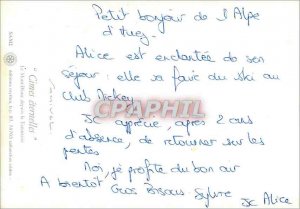 Petit bonjour de l'Alpe
d'Huez.
Alice est enchantée de son
séjour : elle va faire du ski au
club Mickey.
JC apprécie, après 2 ans
d'absence, de retourner sur les
pentes
Moi, je profite du bon air
A bientôt Gros Bisous. Sylvie
JC Alice
"Cimes éternelles"
CPARPHIL